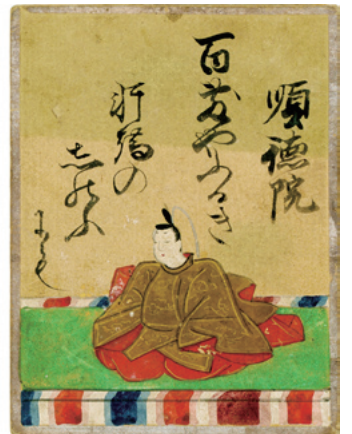 順徳院
百敷やふるき
軒端の
しのふ
にも